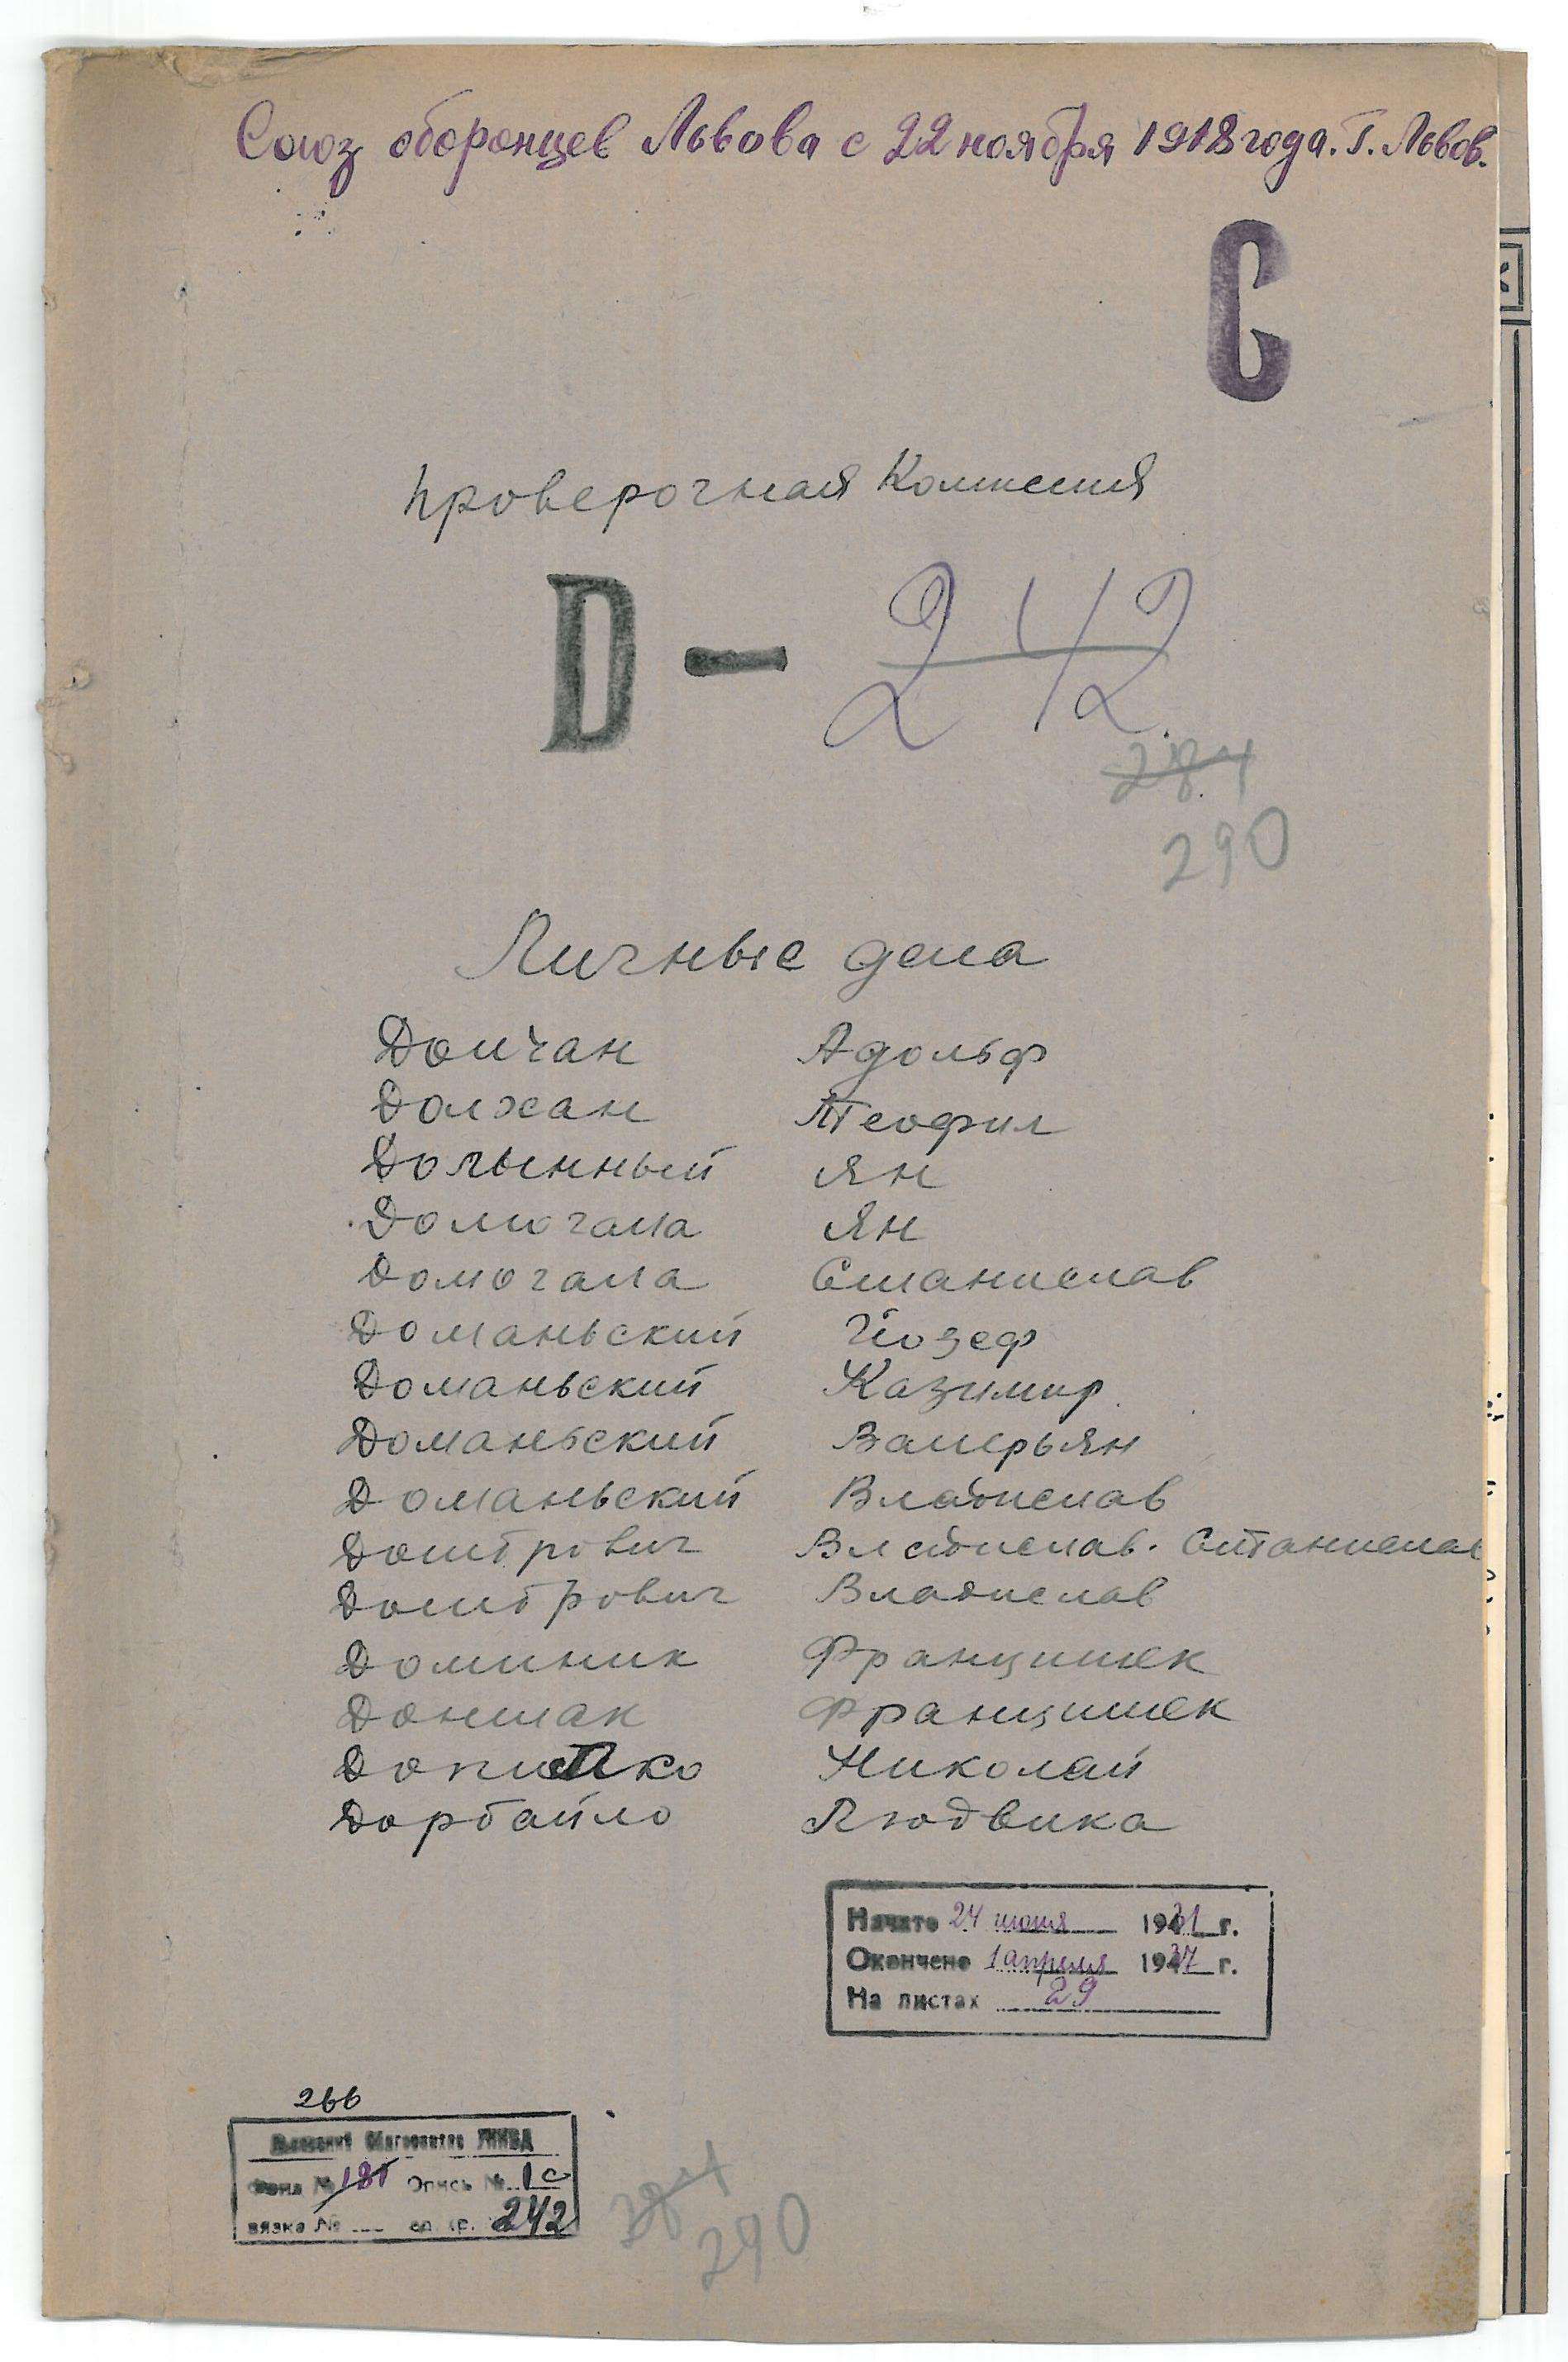 Союз оборонцев Львова с 22 ноября 1918 года. г. Львов.
С
Проверочная Комиссия
D — 242
284
290
Личные дела
Долчан Адольф
Должан Теофил
Долынный Ян
Домогала Ян
Домогала Станислав
Доманьский Йозеф
Доманьский Казимир
Доманьский Валерьян
Доманьский Владислав
Домбрович Владислав. Станислав
Домбрович Владислав
Доминик Францишек
Донмак Францишек
Допитко Николай
Дорбайло Людвика
Начато 24 июня 1931 г.
Окончено 1 апреля 1937 г.
На листах 29
266
Фонд № 181 Опись № 1с
вязка № ед. хр. 242
284
290